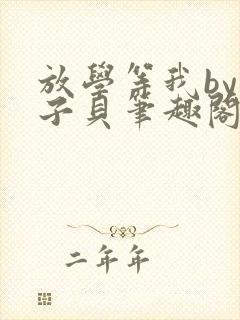 放學等我by
子貝筆趣閣
二年年